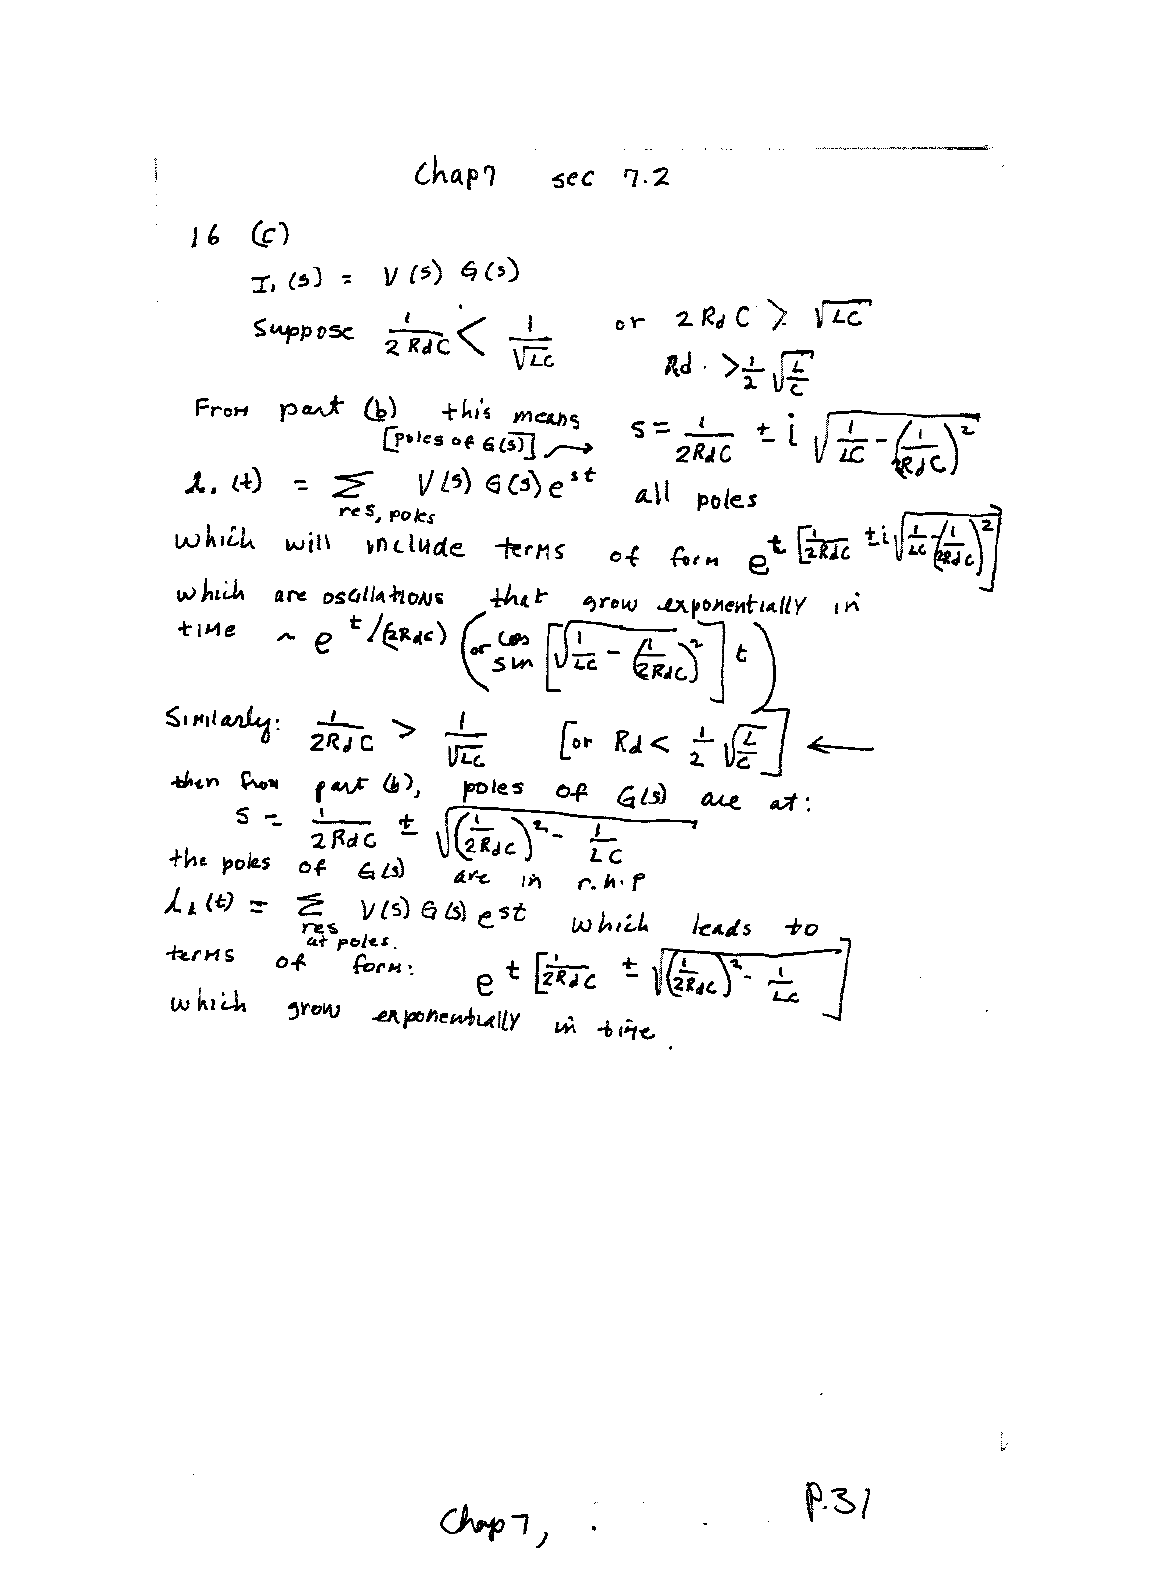 Chap 7 sec 7.2
16 (c)
I₁(s) = V(s) G(s)
Suppose 1/(2RdC) < 1/√LC or 2RdC > √LC
Rd > 1/2 √(L/C)
From part (b) this means s = 1/(2RdC) ± i √(1/LC - (1/(2RdC))²)
[poles of G(s)] →
i₁(t) = Σ V(s) G(s) e^st all poles
res, poles
which will include terms of form e^t[1/(2RdC) ± i√(1/LC - (1/(2RdC))²)]
which are oscillations that grow exponentially in
time ~ e^t/(2RdC) (or cos sin [√(1/LC - (1/(2RdC))²)] t)
Similarly: 1/(2RdC) > 1/√LC [or Rd < 1/2 √(L/C)] ←
then from part (b), poles of G(s) are at:
s = 1/(2RdC) ± √((1/(2RdC))² - 1/LC)
the poles of G(s) are in r.h.p
i₁(t) = Σ V(s) G(s) e^st which leads to
res at poles.
terms of form: e^t[1/(2RdC) ± √((1/(2RdC))² - 1/LC)]
which grow exponentially in time.
Chap 7, P.31